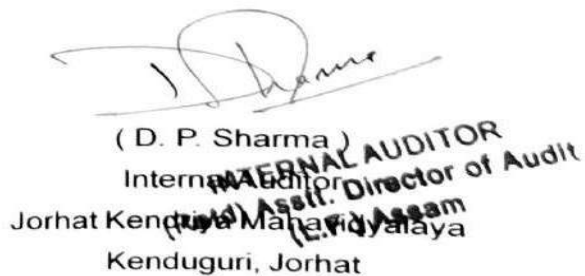 D Sharma
( D. P. Sharma )
Internal Auditor
Jorhat Kendriya Mahavidyalaya
Kenduguri, Jorhat
INTERNAL AUDITOR
(Retd) Asstt. Director of Audit
(L.F.) Assam